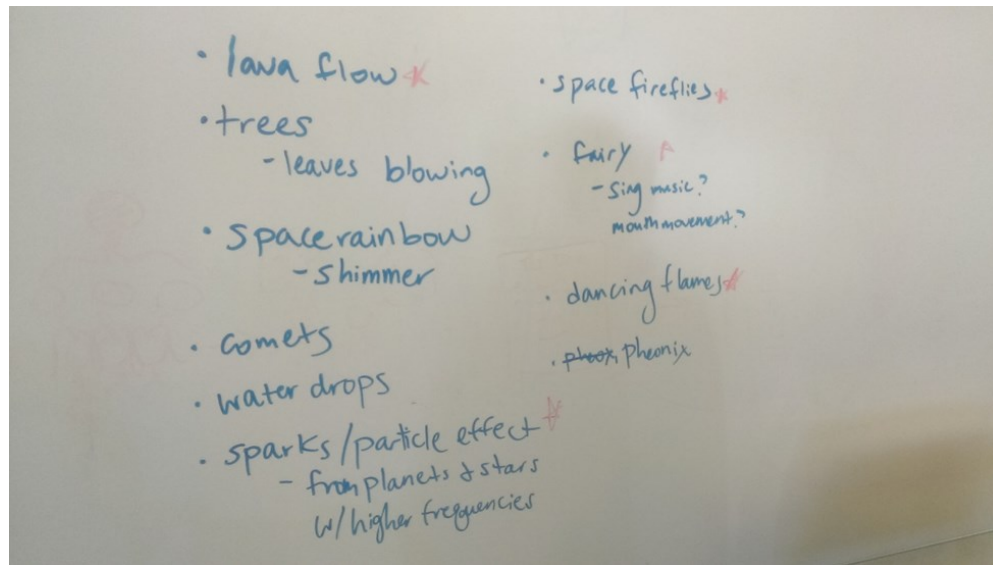 • lava flow *
• trees
- leaves blowing
• space rainbow
- shimmer
• comets
• water drops
• sparks/particle effect *
- from planets & stars
w/higher frequencies
• space fireflies *
• fairy
- sing music?
mouth movement?
• dancing flames *
• pheonix